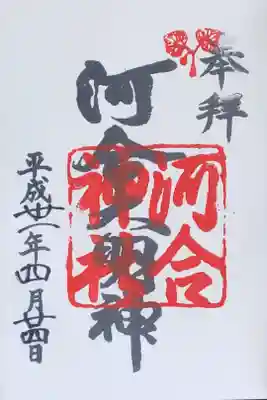 奉拝
河合大明神
河合
神社
平成廿一年四月廿四日